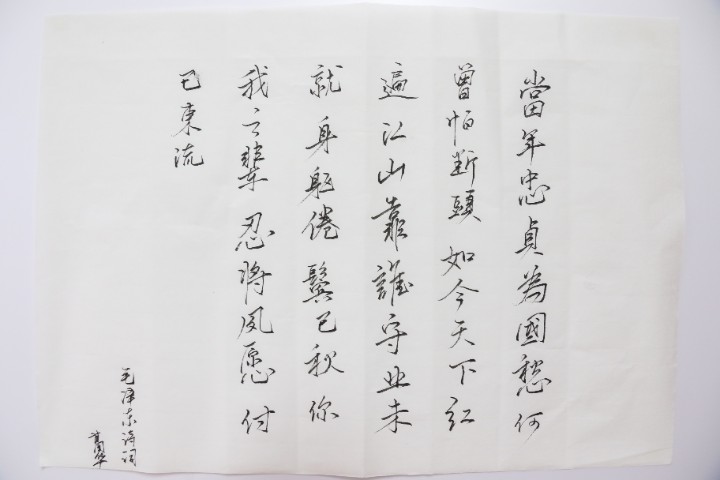 當年忠貞為國愁何
曾怕断頭如今天下红
遍江山靠誰守业未
就身躯倦鬓已秋你
我之辈忍将夙愿付
已東流
毛泽东诗词